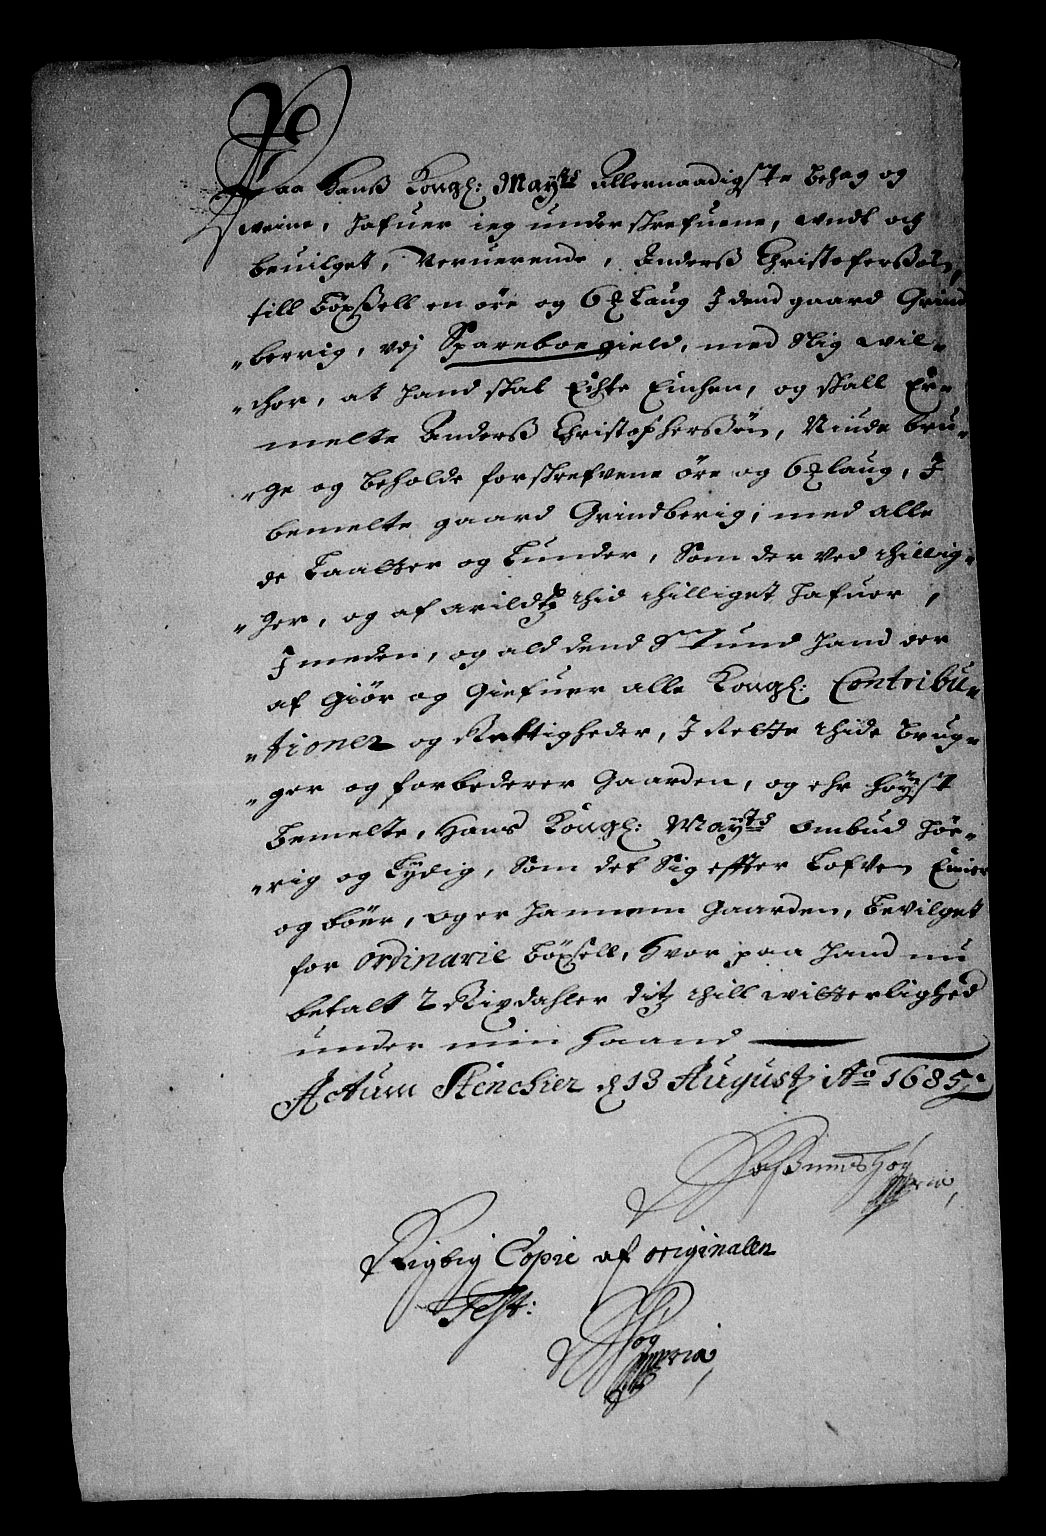 Paa Hanß Kongl: Mayts Allernaadigste behag og
veine, hafuer ieg underskrefuene, undt och
beuilget, Nerverende, Anderß Christoferßøn,
till böxßell en öre og 6 laug J dend gaard Grind
berrig, vej Spareboe gield, med slig wil-
chor, at hand skal Echte Enchen, og skall Er-
melte Anderß Christopherßön, Niude bru-
ge og beholde forskrefvene öre og 6 laug, J
bemelte gaard Grindberig, med alle
de Laatter og Lunder, som der ved thillig-
ger, og af arildtz thid thilliget hafuer,
J meden, og ald dend Stund hand der
af Giör og Giefuer alle Kongl: Contribu-
tioner og Rettigheder, J Rette thide brug-
ger og forbederer Gaarden, og ehr höyst
bemelte, Hans Kongl: Mayts ombud hör-
rig og Lydig, som det sig effter Lofven Einer
og böer, og er hannem Gaarden, bevilget
for ordinarie böxsell, hvor paa hand nu
betalt 2 Rixdahler ditz thill witterlighed
under min haand
Actum Stenchier d 13 Augustj Ao 1685
Høy
mpria,
Rigtig Copie af originalen
Test:
Høg
mpria,